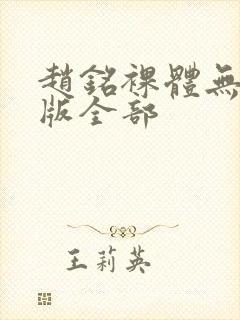 趙銘裸體無
版全部
王莉英